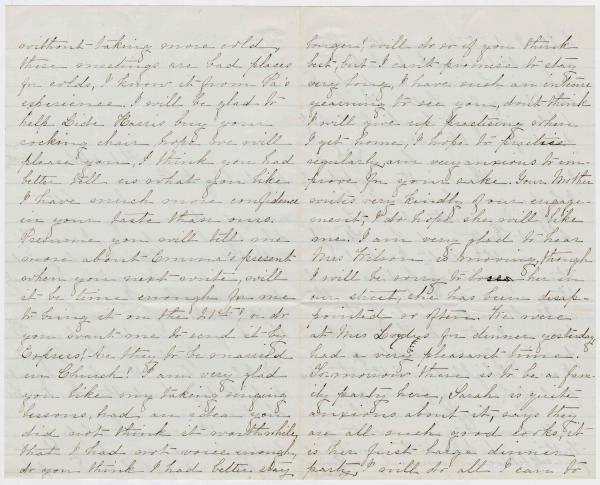 without taking more cold,
these meetings are bad places
for colds, I know it from Pa's
experience. I will be glad to
help Side Harris buy your
rocking chair, hope we will
please you, I think you had
better tell us what you like
I have much more confidence
in your taste than ours.
Presume you will tell me
more about Emma's present
when you next write, will
it be time enough for me
to bring it on the 21st? or do
you want me to send it by
Express, Are they to be married
in Church? I am very glad
you like my taking singing
lessons, had an idea you
did not think it worth while,
that I had not voice enough,
do you think I had better stay
longer? will do so if you think
best, but I can't promise to stay
very long, I have such an intense
yearning to see you, don't think
I will give up practising when
I get home, I hope to practice
regularly, am very anxious to im-
prove for your sake. Your Mother
writes very kindly of our engage-
ment, I do hope she will like
me. I am very glad to hear
Mrs Wilson is moving, though
I will be sorry to lose her in
our street, she has been disap-
pointed so often. We were
at Mrs for dinner yesterday
had a very pleasant time.
To-morrow there is to be a fam-
ily party here, Sarah is quite
anxious about it, says they
are all such good cooks, it
is her first large dinner
party, I will do all I can to